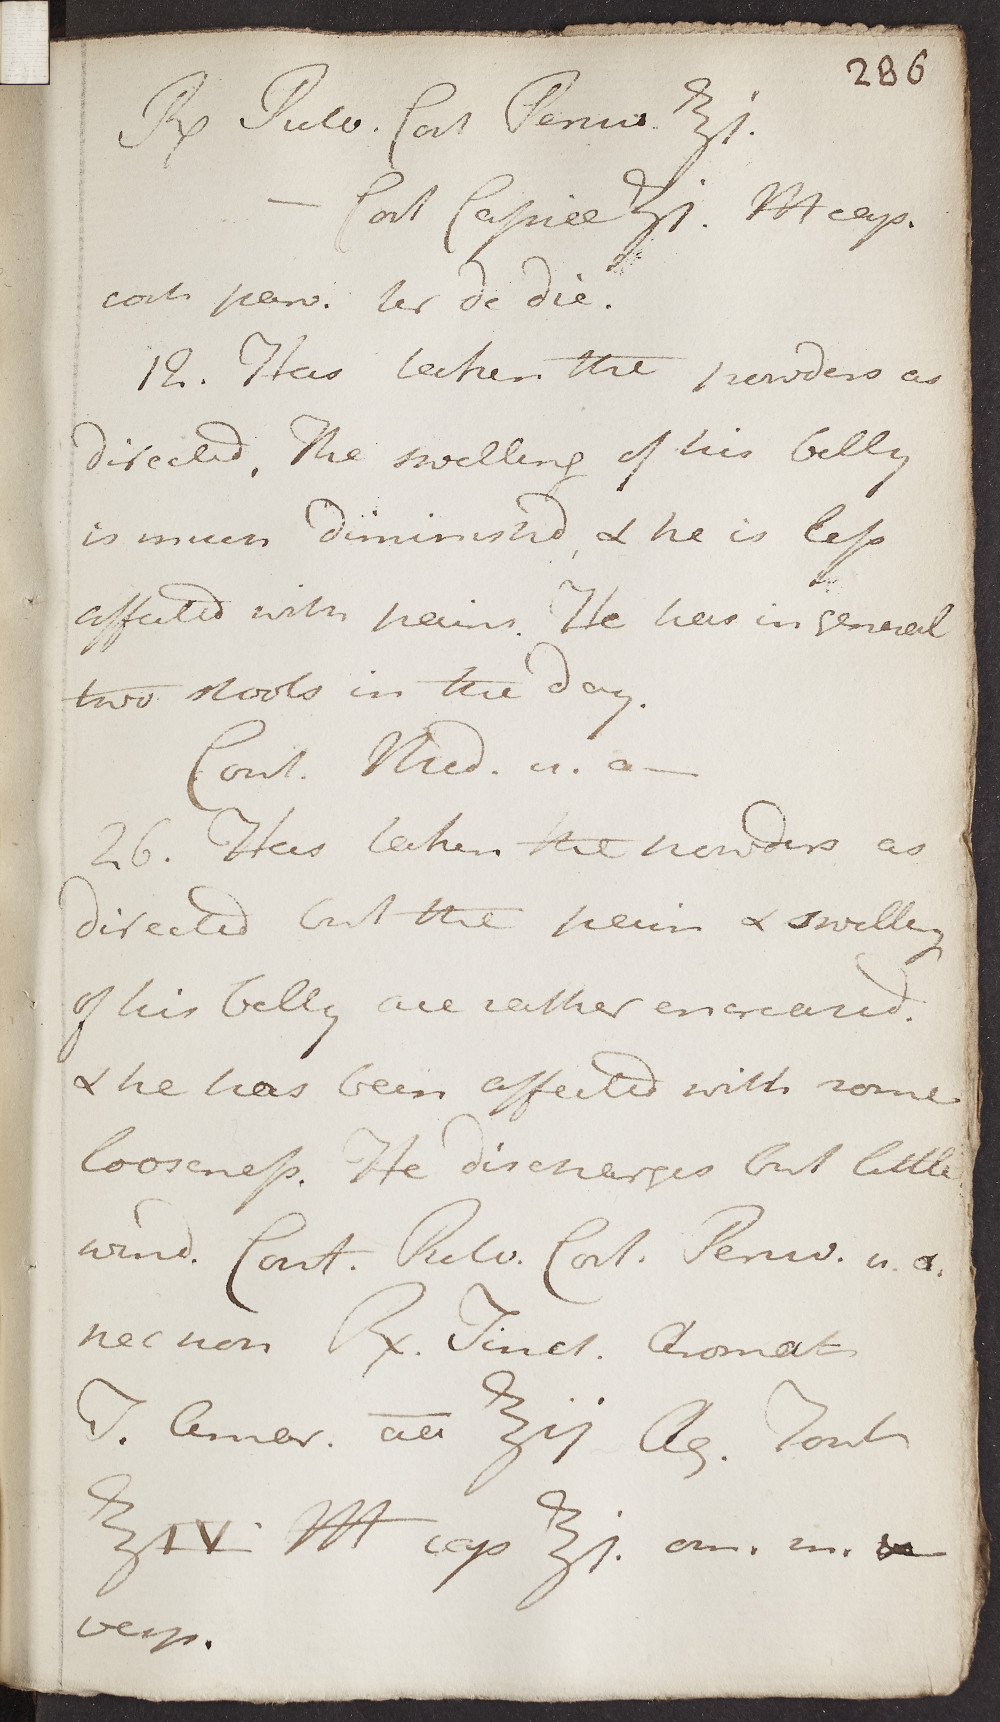 286
Rx Pulv. Cort Peruv. ℥j.
— Cort Cassiæ ℥j. M cap.
coch parv. ter de die.
12. Has taken the powders as
directed, The swelling of his belly
is much diminishd, & he is less
affected with pains. He has in general
two stools in the day.
Cont. Med. u. a—
26. Has taken the powders as
directed but the pain & swelling
of his belly are rather encreased.
& he has been affected with some
looseness. He discharges but little
wind. Cont. Pulv. Cort. Peruv. u. a.
necnon Rx. Tinct. Aromat
T. Amar. aa ℥ij Aq. Font
℥IV M cap ℥j. om. m.
vesp.